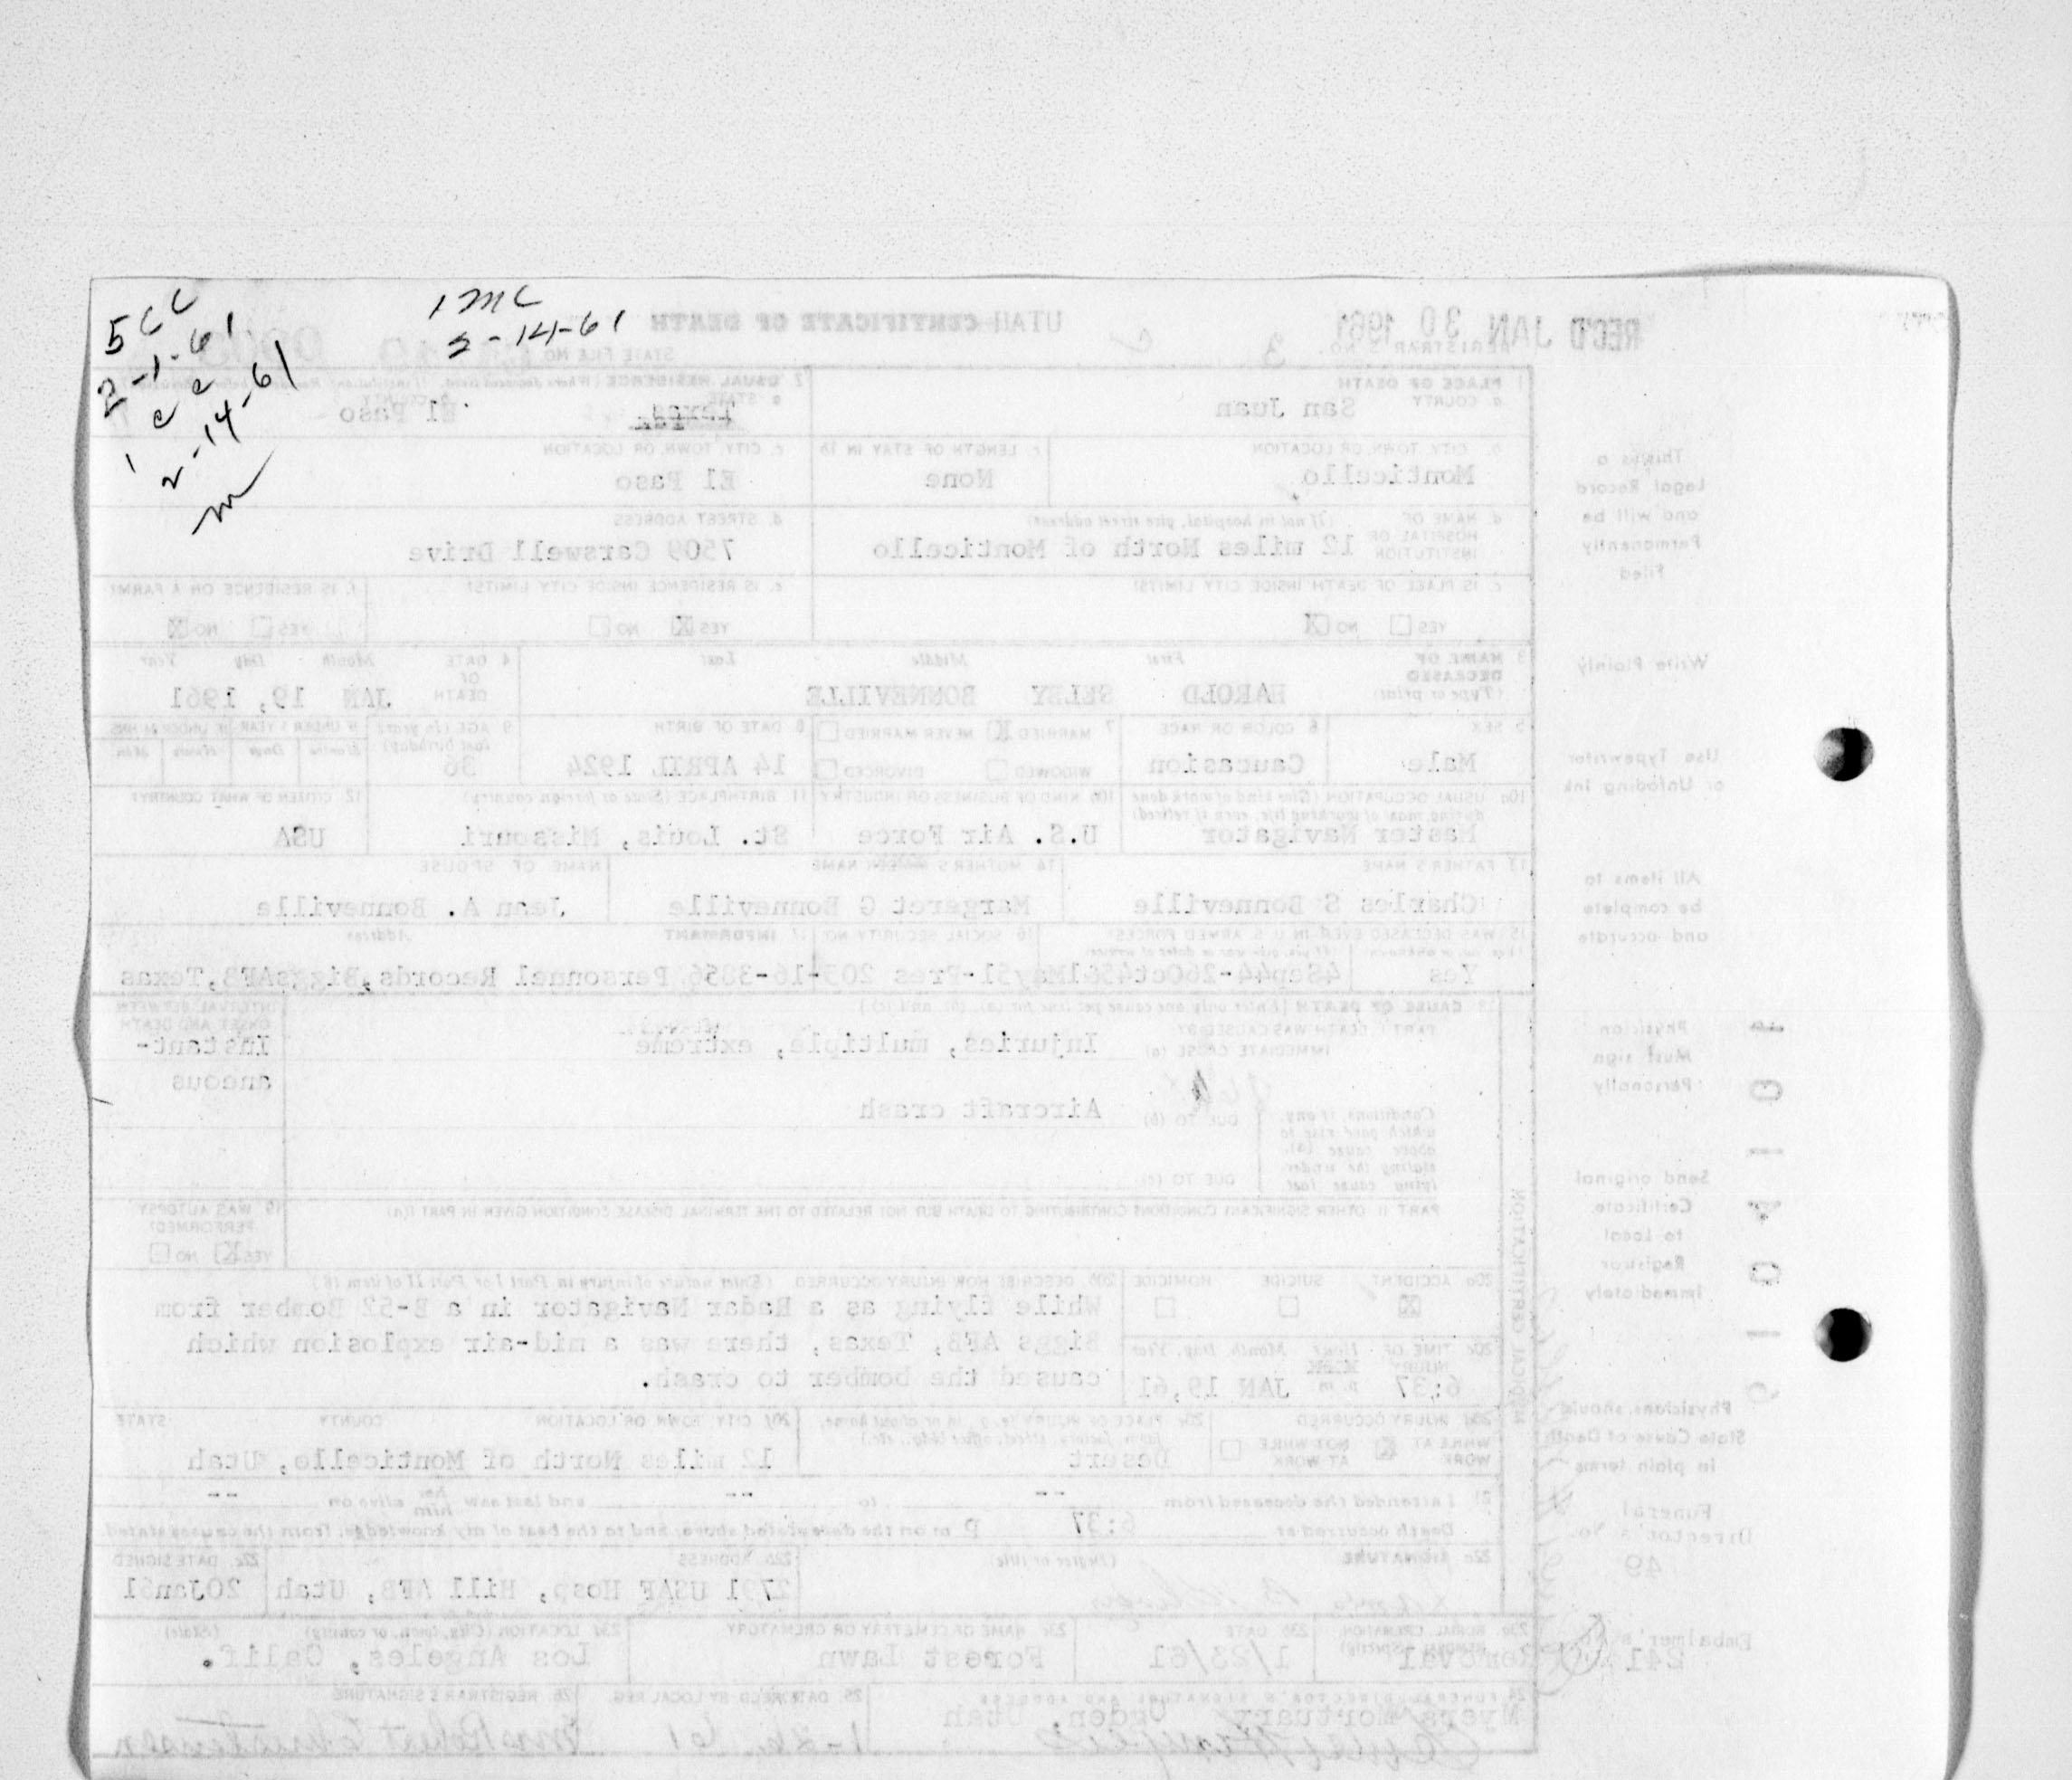 5 CC
2-1-61
1 cc
2-14-61
1 MC
2-14-61
REC'D JAN 30 1961
UTAH CERTIFICATE OF DEATH
STATE FILE NO.
REGISTRAR'S NO. 3
1 PLACE OF DEATH
a. COUNTY San Juan
2 USUAL RESIDENCE (Where deceased lived. If institution: Residence before admission)
a STATE Texas b. COUNTY El Paso
b. CITY, TOWN, OR LOCATION Monticello
c. LENGTH OF STAY IN 1b None
c. CITY, TOWN, OR LOCATION El Paso
d. NAME OF HOSPITAL OR INSTITUTION (If not in hospital, give street address) 12 miles North of Monticello
d. STREET ADDRESS 7509 Carswell Drive
e. IS PLACE OF DEATH INSIDE CITY LIMITS?
YES NO X
e. IS RESIDENCE INSIDE CITY LIMITS?
YES X NO
f. IS RESIDENCE ON A FARM?
YES NO X
3 NAME OF DECEASED (Type or print) First Middle Last
HAROLD SELBY BONNEVILLE
4 DATE OF DEATH Month Day Year
JAN 19, 1961
5 SEX Male
6 COLOR OR RACE Caucasion
7 MARRIED X NEVER MARRIED
WIDOWED DIVORCED
8 DATE OF BIRTH 14 APRIL 1924
9 AGE (In years last birthday) 36
IF UNDER 1 YEAR IF UNDER 24 HRS
Months Days Hours Min.
10a USUAL OCCUPATION (Give kind of work done during most of working life, even if retired) Master Navigator
10b KIND OF BUSINESS OR INDUSTRY U.S. Air Force
11 BIRTHPLACE (State or foreign country) St. Louis, Missouri
12 CITIZEN OF WHAT COUNTRY? USA
13 FATHER'S NAME Charles S Bonneville
14 MOTHER'S NAME Margaret G Bonneville
NAME OF SPOUSE Jean A. Bonneville
15 WAS DECEASED EVER IN U.S. ARMED FORCES?
(Yes, no, or unknown) (If yes, give war or dates of service)
Yes
16 SOCIAL SECURITY NO.
17 INFORMANT Address
Personnel Records, Biggs AFB, Texas
18 CAUSE OF DEATH [Enter only one cause per line for (a), (b), and (c).]
PART I. DEATH WAS CAUSED BY
IMMEDIATE CAUSE (a) Injuries, multiple, extreme
INTERVAL BETWEEN ONSET AND DEATH
Instant-
aneous
Conditions, if any, which gave rise to above cause (a), stating the under-lying cause last
DUE TO (b) Aircraft crash
DUE TO (c)
PART II. OTHER SIGNIFICANT CONDITIONS CONTRIBUTING TO DEATH BUT NOT RELATED TO THE TERMINAL DISEASE CONDITION GIVEN IN PART I(a)
19 WAS AUTOPSY PERFORMED?
YES X NO
20a ACCIDENT SUICIDE HOMICIDE
20b. DESCRIBE HOW INJURY OCCURRED. (Enter nature of injury in Part I or Part II of item 18.)
While flying as a Radar Navigator in a B-52 Bomber from
Biggs AFB, Texas, there was a mid-air explosion which
caused the bomber to crash.
20c TIME OF INJURY Hour Month, Day, Year
6:37 p. m. JAN 19,61
20d INJURY OCCURRED
WHILE AT WORK X NOT WHILE AT WORK
20e PLACE OF INJURY (e.g., in or about home, farm, factory, street, office bldg., etc.)
Desert
20f CITY, TOWN OR LOCATION COUNTY STATE
12 miles North of Monticello, Utah
21 I attended the deceased from -- to -- and last saw her him alive on --
Death occurred at 6:37 p m on the date stated above, and to the best of my knowledge, from the causes stated.
22a SIGNATURE (Degree or title)
22b ADDRESS 2791 USAF Hosp, Hill AFB, Utah
22c DATE SIGNED 20Jan61
23a BURIAL, CREMATION, REMOVAL (Specify) Removal
23b DATE 1/23/61
23c NAME OF CEMETERY OR CREMATORY Forest Lawn
23d LOCATION (City, town, or county) (State)
Los Angeles, Calif.
24 FUNERAL DIRECTOR'S SIGNATURE AND ADDRESS
Myers Mortuary Ogden, Utah
25 DATE REC'D BY LOCAL REG.
26 REGISTRAR'S SIGNATURE
MEDICAL CERTIFICATION
This is a
Legal Record
and will be
Permanently
Filed
Write Plainly
Use Typewriter
or Unfading Ink
All items to
be complete
and accurate
Physician
Must sign
Personally
Send original
Certificate
to Local
Registrar
Immediately
Physicians should
State Cause of Death
in plain terms
Funeral
Director's No.
49
Embalmer's No.
241